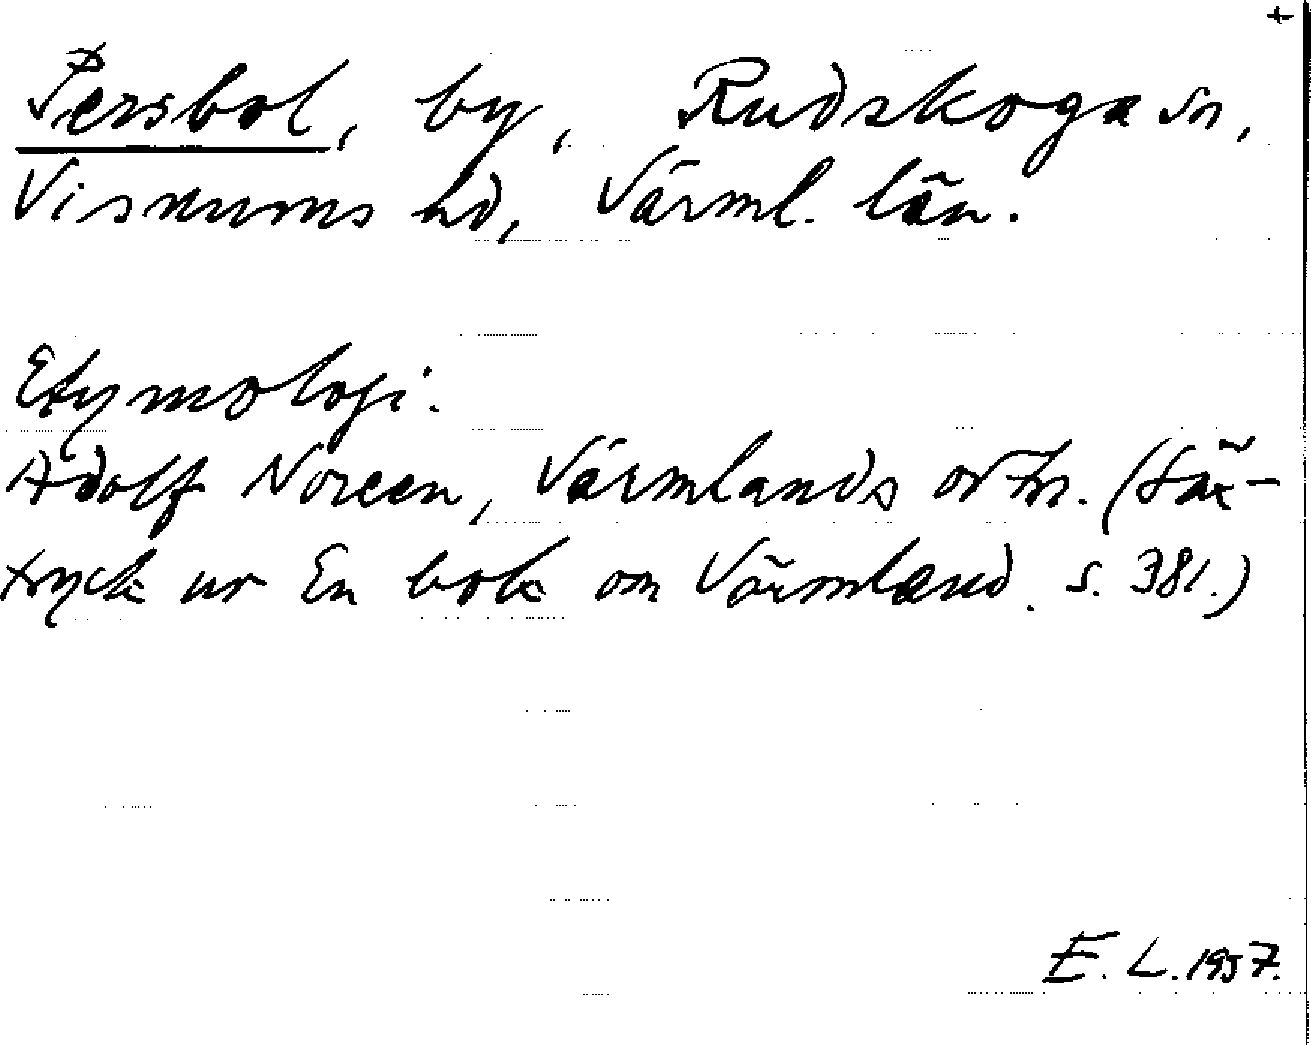 +
Persbol, by, Rudskoga sn,
Visnums hd, Värml. län.
Etymologi:
Adolf Noreen, Värmlands ortn. (Sär-
tryck ur En bok om Värmland. s. 381.)
E. L. 1957.